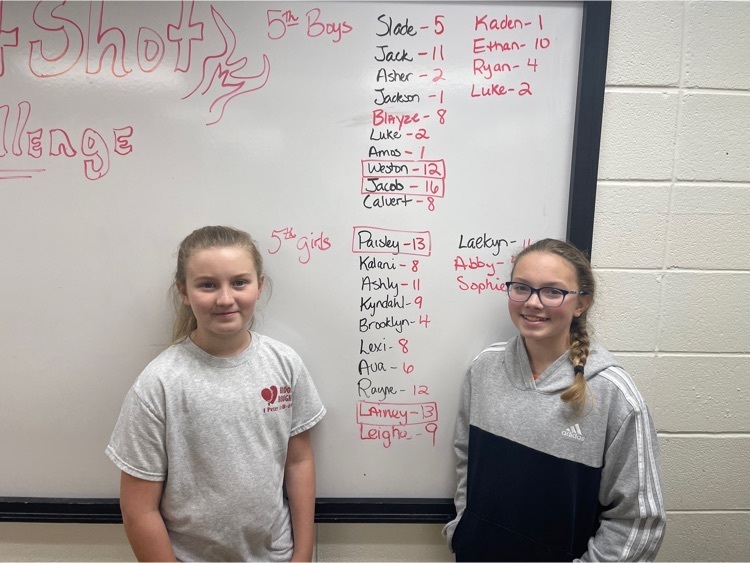 t Shot
llenge
5th Boys
Slade - 5
Jack - 11
Asher - 2
Jackson - 1
Blayze - 8
Luke - 2
Amos - 1
Weston - 12
Jacob - 16
Calvert - 8
Kaden - 1
Ethan - 10
Ryan - 4
Luke - 2
5th girls
Paisley - 13
Kalani - 8
Ashly - 11
Kyndahl - 9
Brooklyn - 4
Lexi - 8
Ava - 6
Rayne - 12
Lainey - 13
Leigha - 9
Laekyn -
Abby -
Sophie
adidas